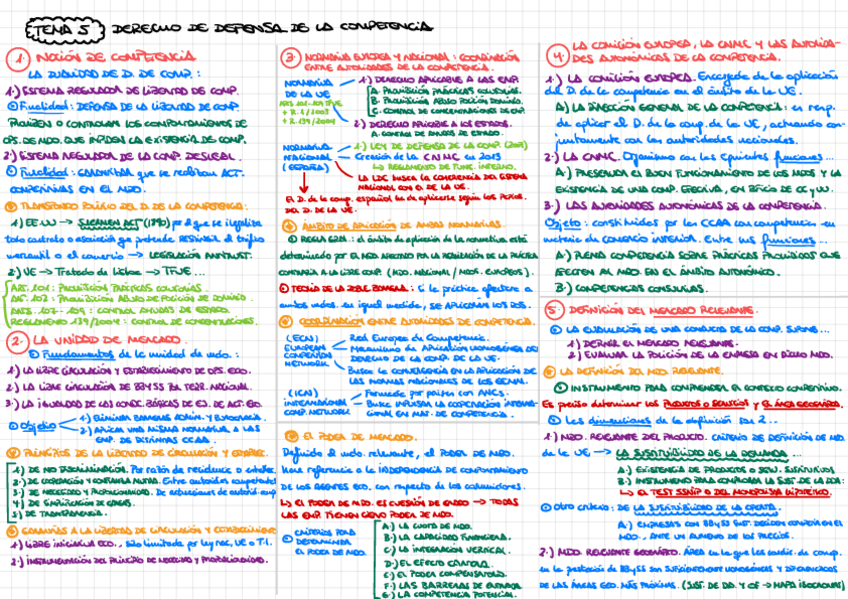 TEMA 5 DERECHO DE DEFENSA DE LA COMPETENCIA
1. NOCIÓN DE COMPETENCIA
LA DUALIDAD DE D. DE COMP.:
1.) SISTEMA REGULADOR DE LIBERTAD DE COMP.
Finalidad: DEFENSA DE LA LIBERTAD DE COMP.
PROHÍBEN O CONTROLAN LOS COMPORTAMIENTOS DE
OPS. DE MDO. QUE INCIDEN LA EXISTENCIA DE COMP.
2.) SISTEMA REGULADOR DE LA COMP. DESLEAL.
Finalidad: GARANTIZAR que se realizan ACT.
COMPETITIVAS EN EL MDO.
TRANSFONDO POLÍTICO DEL D. DE LA COMPETENCIA:
1) EE.UU → SHERMAN ACT (1890) por el que se ilegaliza
todo contrato o asociación que pretenda RESTRINGIR el tráfico
mercantil o el comercio → LEGISLACIÓN ANTITRUST.
2) UE → Tratado de Lisboa → TFUE...
ART. 101: PROHIBICIÓN PRÁCTICAS COLUSORIAS.
ART. 102: PROHIBICIÓN ABUSO DE POSICIÓN DE DOMINIO.
ARTS. 107-109: CONTROL AYUDAS DE ESTADO.
REGLAMENTO 139/2004: CONTROL DE CONCENTRACIONES.
2. LA UNIDAD DE MERCADO.
Fundamentos de la unidad de mdo.:
1.) LA LIBRE CIRCULACIÓN Y ESTABLECIMIENTO DE OPS. ECO.
2.) LA LIBRE CIRCULACIÓN DE BB Y SS EN TERR. NACIONAL.
3.) LA IGUALDAD DE LAS CONDC. BÁSICAS DE EJ. DE ACT. ECO.
Objetivo
1.) ELIMINAR BARRERAS ADMIN. Y BUROCRACIA.
2.) APLICAR UNA MISMA NORMATIVA A LAS
EMP. DE DISTINTAS CCAA.
PRINCIPIOS DE LA LIBERTAD DE CIRCULACIÓN Y ESTABLEC.
1) DE NO DISCRIMINACIÓN. Por razón de residencia o establec.
2.) DE COOPERACIÓN Y CONFIANZA MUTUA. Entre autoridades competentes
3) DE NECESIDAD Y PROPORCIONALIDAD. De actuaciones de autorid. comp
4) DE SIMPLIFICACIÓN DE CARGAS.
5) DE TRANSPARENCIA.
GARANTÍAS A LA LIBERTAD DE CIRCULACIÓN Y ESTABLECIMIENTO
1) LIBRE INICIATIVA ECO., sólo limitada por ley nac, UE o T.I.
2.) INSTRUMENTACIÓN DEL PRINCIPIO DE NECESIDAD Y PROPORCIONALIDAD.
3. NORMATIVA EUROPEA Y NACIONAL: COORDINACIÓN
ENTRE AUTORIDADES DE LA COMPETENCIA.
NORMATIVA DE LA UE
ARTS. 101-109 TFUE
+ R. 1/2003
+ R. 139/2004
1.) DERECHO APLICABLE A LAS EMP.
A. PROHIBICIÓN PRÁCTICAS COLUSORIAS.
B. PROHIBICIÓN ABUSO POSICIÓN DOMINIO.
C. CONTROL DE CONCENTRACIONES DE EMP.
2.) DERECHO APLICABLE A LOS ESTADOS.
A. CONTROL DE AYUDAS DE ESTADO.
NORMATIVA NACIONAL (ESPAÑA)
1.) LEY DE DEFENSA DE LA COMP. (2007)
Creación de la CNMC en 2013
↳ REGLAMENTO DE FUNC. INTERNO.
LA LDC BUSCA LA COHERENCIA DEL SISTEMA
NACIONAL CON EL DE LA UE.
El D. de la comp. español ha de aplicarse según los PCPIOS.
DEL D. DE LA UE.
ÁMBITO DE APLICACIÓN DE AMBAS NORMATIVAS.
REGLA GZAL: el ámbito de aplicación de la normativa está
determinado por EL MDO AFECTADO POR LA REALIZACIÓN DE LA PRÁCTICA
CONTRARIA A LA LIBRE COMP. (MDO. NACIONAL / MDOS. EUROPEOS).
TEORÍA DE LA DOBLE BARRERA: si la práctica afectara a
ambos mdos. en igual medida, SE APLICARÁN LOS DOS.
COORDINACIÓN ENTRE AUTORIDADES DE COMPETENCIA.
(ECN) EUROPEAN COMPETITION NETWORK
Red Europea de Competencia.
Mecanismo de APLICACIÓN HOMOGÉNEA DEL
DERECHO DE LA COMP. DE LA UE.
Busca LA CONVERGENCIA EN LA APLICACIÓN DE
LAS NORMAS NACIONALES DE LOS EEMM.
(ICN) INTERNATIONAL COMP. NETWORK
Formada por países con ANCS.
Busca IMPULSAR LA COOPERACIÓN INTERNA-
CIONAL EN MAT. DE COMPETENCIA.
EL PODER DE MERCADO.
Definido el mdo. relevante, el PODER DE MDO.
hará referencia a la INDEPENDENCIA DE COMPORTAMIENTO
DE LOS AGENTES ECO. con respecto de los consumidores.
↳ EL PODER DE MDO. ES CUESTIÓN DE GRADO → TODAS
LAS EMP. TIENEN CIERTO PODER DE MDO.
CRITERIOS PARA DETERMINAR EL PODER DE MDO.
A.) LA CUOTA DE MDO.
B.) LA CAPACIDAD FINANCIERA.
C.) LA INTEGRACIÓN VERTICAL.
D.) EL EFECTO CARTERA.
E.) EL PODER COMPENSATORIO.
F.) LAS BARRERAS DE ENTRADA.
G.) LA COMPETENCIA POTENCIAL.
4. LA COMISIÓN EUROPEA, LA CNMC Y LAS AUTORIDA-
DES AUTONÓMICAS DE LA COMPETENCIA.
1.) LA COMISIÓN EUROPEA. Encargada de la aplicación
del D. de la competencia en el ámbito de la UE.
A) LA DIRECCIÓN GENERAL DE LA COMPETENCIA: es resp.
de aplicar el D. de la comp. de la UE, actuando con-
juntamente con las autoridades nacionales.
2.) LA CNMC. Organismo con las siguientes funciones...
A) PRESERVAR EL BUEN FUNCIONAMIENTO DE LOS MDOS Y LA
EXISTENCIA DE UNA COMP. EFECTIVA, EN BFICIO DE CC Y UU.
3.) LAS AUTORIDADES AUTONÓMICAS DE LA COMPETENCIA.
Objeto: constituidas por las CCAA con competencias en
materia de comercio interior. Entre sus funciones...
A) PLENA COMPETENCIA SOBRE PRÁCTICAS PROHIBIDAS QUE
AFECTEN AL MDO. EN EL ÁMBITO AUTONÓMICO.
B.) COMPETENCIAS CONSULTIVAS.
5. DEFINICIÓN DEL MERCADO RELEVANTE.
LA EVALUACIÓN DE UNA CONDUCTA DE LA COMP. SUPONE...
1) DEFINIR EL MERCADO RELEVANTE.
2) EVALUAR LA POSICIÓN DE LA EMPRESA EN DICHO MDO.
LA DEFINICIÓN DEL MDO. RELEVANTE.
INSTRUMENTO PARA COMPRENDER EL CONTEXTO COMPETITIVO.
Es preciso determinar los PRODUCTOS O SERVICIOS y EL ÁREA GEOGRÁFICA.
Las dimensiones de la definición son 2...
1) MDO. RELEVANTE DEL PRODUCTO. CRITERIO DE DEFINICIÓN DE MDO.
de la UE → LA SUSTITUIBILIDAD DE LA DEMANDA...
A.) EXISTENCIA DE PRODUCTOS O SERV. SUSTITUTIVOS
B.) INSTRUMENTO PARA COMPROBAR LA SUST. DE LA DDA:
↳ EL TEST SSNIP O DEL MONOPOLISTA HIPOTÉTICO.
Otro criterio: DE LA SUSTITUIBILIDAD DE LA OFERTA.
A.) EMPRESAS CON BB Y SS SUST. DECIDEN COMPETIR EN EL
MDO., ANTE UN AUMENTO DE LOS PRECIOS.
2.) MDO. RELEVANTE GEOGRÁFICO. ÁREA en la que las condic. de comp.
en la prestación de BB y SS son SUFICIENTEMENTE HOMOGÉNEAS Y DIFERENCIADAS
DE LAS ÁREAS GEO. MÁS PRÓXIMAS. (SUST. DE DD. Y OF → MAPA ISOCRONAS)